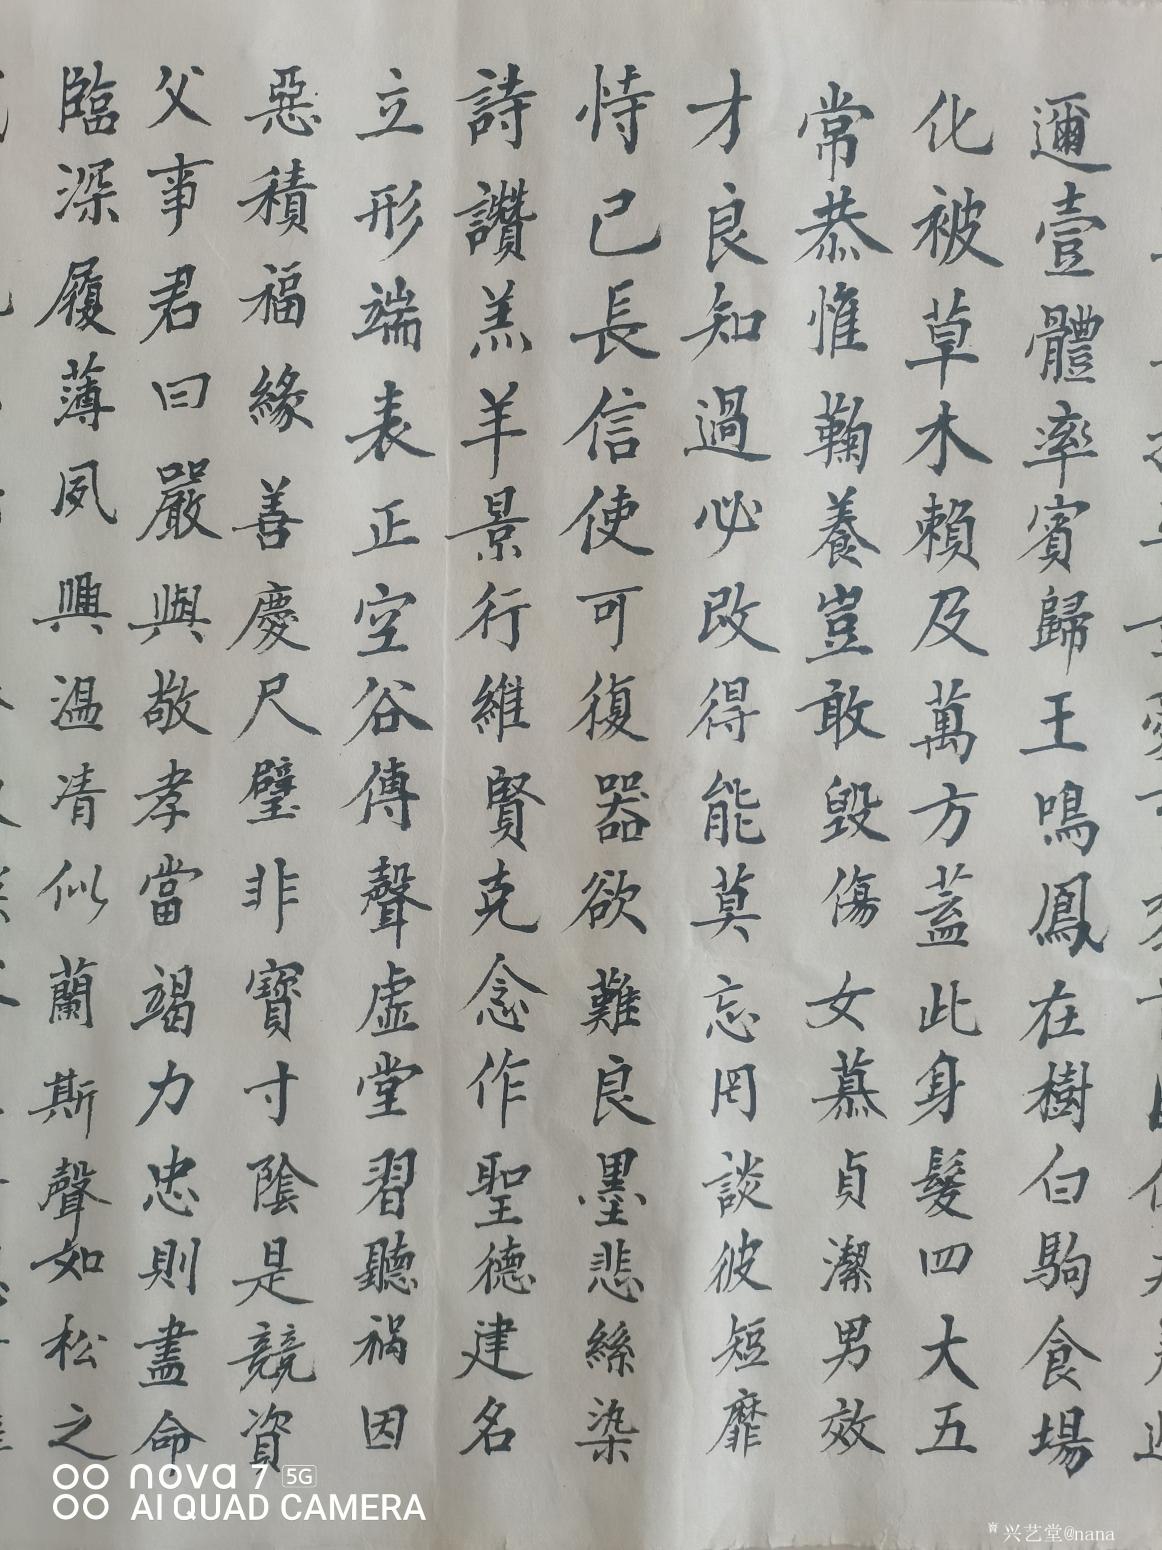 邇壹體率賓歸王鳴鳳在樹白駒食場
化被草木賴及萬方蓋此身髮四大五
常恭惟鞠養豈敢毀傷女慕貞潔男效
才良知過必改得能莫忘罔談彼短靡
恃己長信使可復器欲難良墨悲絲染
詩讚羔羊景行維賢克念作聖德建名
立形端表正空谷傳聲虛堂習聽禍因
惡積福緣善慶尺璧非寶寸陰是競資
父事君曰嚴與敬孝當竭力忠則盡命
臨深履薄夙興溫凊似蘭斯聲如松之
nova 7 5G
AI QUAD CAMERA
兴艺堂@nana